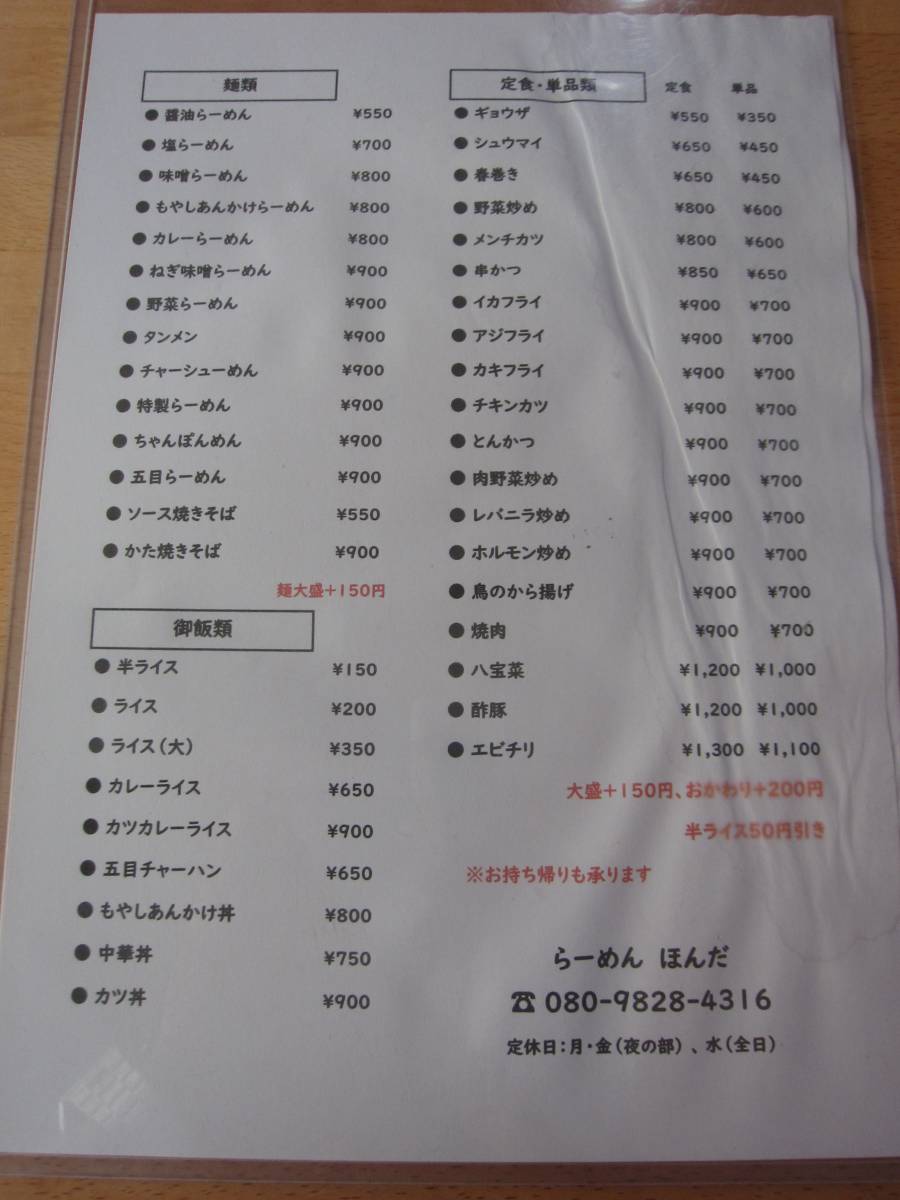 麺類
●醤油らーめん ¥550
●塩らーめん ¥700
●味噌らーめん ¥800
●もやしあんかけらーめん ¥800
●カレーらーめん ¥800
●ねぎ味噌らーめん ¥900
●野菜らーめん ¥900
●タンメン ¥900
●チャーシューめん ¥900
●特製らーめん ¥900
●ちゃんぽんめん ¥900
●五目らーめん ¥900
●ソース焼きそば ¥550
●かた焼きそば ¥900
麺大盛+150円
御飯類
●半ライス ¥150
●ライス ¥200
●ライス(大) ¥350
●カレーライス ¥650
●カツカレーライス ¥900
●五目チャーハン ¥650
●もやしあんかけ丼 ¥800
●中華丼 ¥750
●カツ丼 ¥900
定食・単品類 定食 単品
●ギョウザ ¥550 ¥350
●シュウマイ ¥650 ¥450
●春巻き ¥650 ¥450
●野菜炒め ¥800 ¥600
●メンチカツ ¥800 ¥600
●串かつ ¥850 ¥650
●イカフライ ¥900 ¥700
●アジフライ ¥900 ¥700
●カキフライ ¥900 ¥700
●チキンカツ ¥900 ¥700
●とんかつ ¥900 ¥700
●肉野菜炒め ¥900 ¥700
●レバニラ炒め ¥900 ¥700
●ホルモン炒め ¥900 ¥700
●鳥のから揚げ ¥900 ¥700
●焼肉 ¥900 ¥700
●八宝菜 ¥1,200 ¥1,000
●酢豚 ¥1,200 ¥1,000
●エビチリ ¥1,300 ¥1,100
大盛+150円、おかわり+200円
半ライス50円引き
※お持ち帰りも承ります
らーめん ほんだ
☎080-9828-4316
定休日:月・金(夜の部)、水(全日)